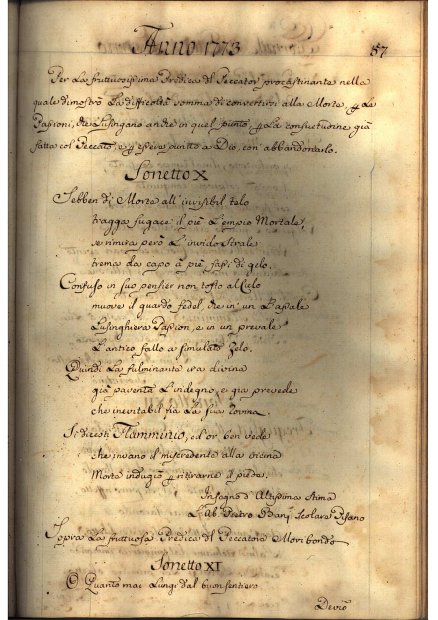 Anno 1773 57
Per La fruttuosissima Predica dl Peccator procrastinante nella
quale dimostrò La difficoltà somma di convertirsi alla Morte, p Le
Passioni, che Lusingano anche in quel punto, p La consuetudine già
fatta col Peccato, e p esser punito a Dio, con abbandonarlo.
Sonetto X
Sebben di Morte all' invisibil telo
tragga fugace il piè L'empio Mortale,
se rimira però L'invido Strale
trema da capo a piè, fassi di gelo.
Confuso in suo pensier non tosto al Cielo
muove il guardo fedel, che in un Bassale
Lusinghiera Passion, e in un prevale
L'antico fallo a simulato Zelo.
Quindi La fulminante ira divina
già paventa L'indegno, e già prevede
che inevitabil fia La sua rovina.
Sì dicesti Flamminio, ed or ben vede
che invano il miscredente alla vicina
Morte indugia p ritirarne il piede.
In segno d' Altissima Stima
L'Ab. Pietro Banj Scolare Pisano
Sopra La fruttuosa Predica dl Peccatore Moribondo
Sonetto XI
O Quanto mai Lungi dal buon sentiero
Deviò